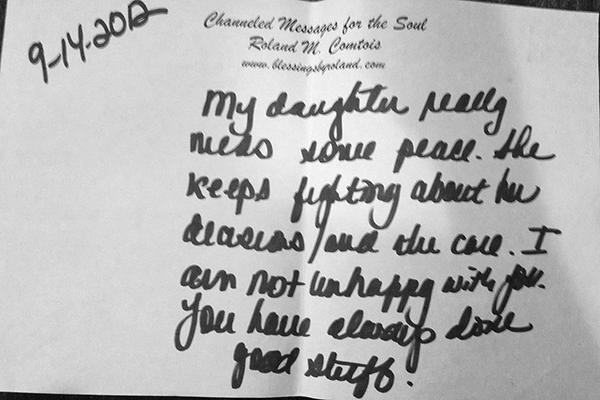 9-14-2012
Channeled Messages for the Soul
Roland M. Comtois
www.blessingsbyroland.com
My daughter really
needs some peace. She
keeps fighting about her
decisions/and the care. I
am not unhappy with you.
You have always done
good stuff.